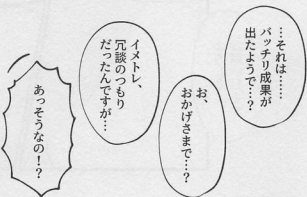 …それは……
バッチリ成果が
出たようで…?
お、
おかげさまで…?
イメトレ、
冗談のつもり
だったんですが…
あっそうなの!?